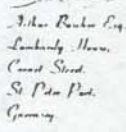 Arthur Rowker Esq.
Lombardy House.
Cornet Street.
St. Peter Port.
Guernsey